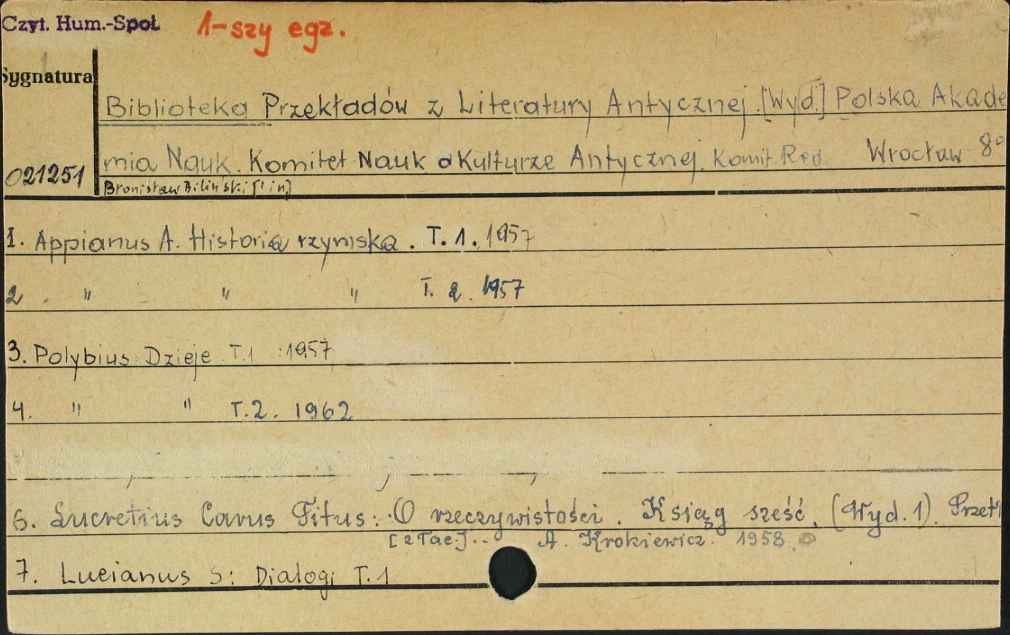 Czyt. Hum.-Społ
1-szy egz.
Sygnatura
Biblioteka Przekładów z Literatury Antycznej. [Wyd.] Polska Akade
021251
mia Nauk. Komitet Nauk o Kulturze Antycznej. Komit. Red. Wrocław 8°
Bronisław Biliński [i in]
1. Appianus A. Historia rzymska. T. 1. 1957
2 . " " " T. 2. 1957
3. Polybius Dzieje T.1 1957
4. " " T.2. 1962
6. Lucretius Carus Titus: O rzeczywistości. Ksiąg sześć. (Wyd. 1). Przeł
[z łac].. A. Krokiewicz. 1958.
7. Lucianus S: Dialogi T.1